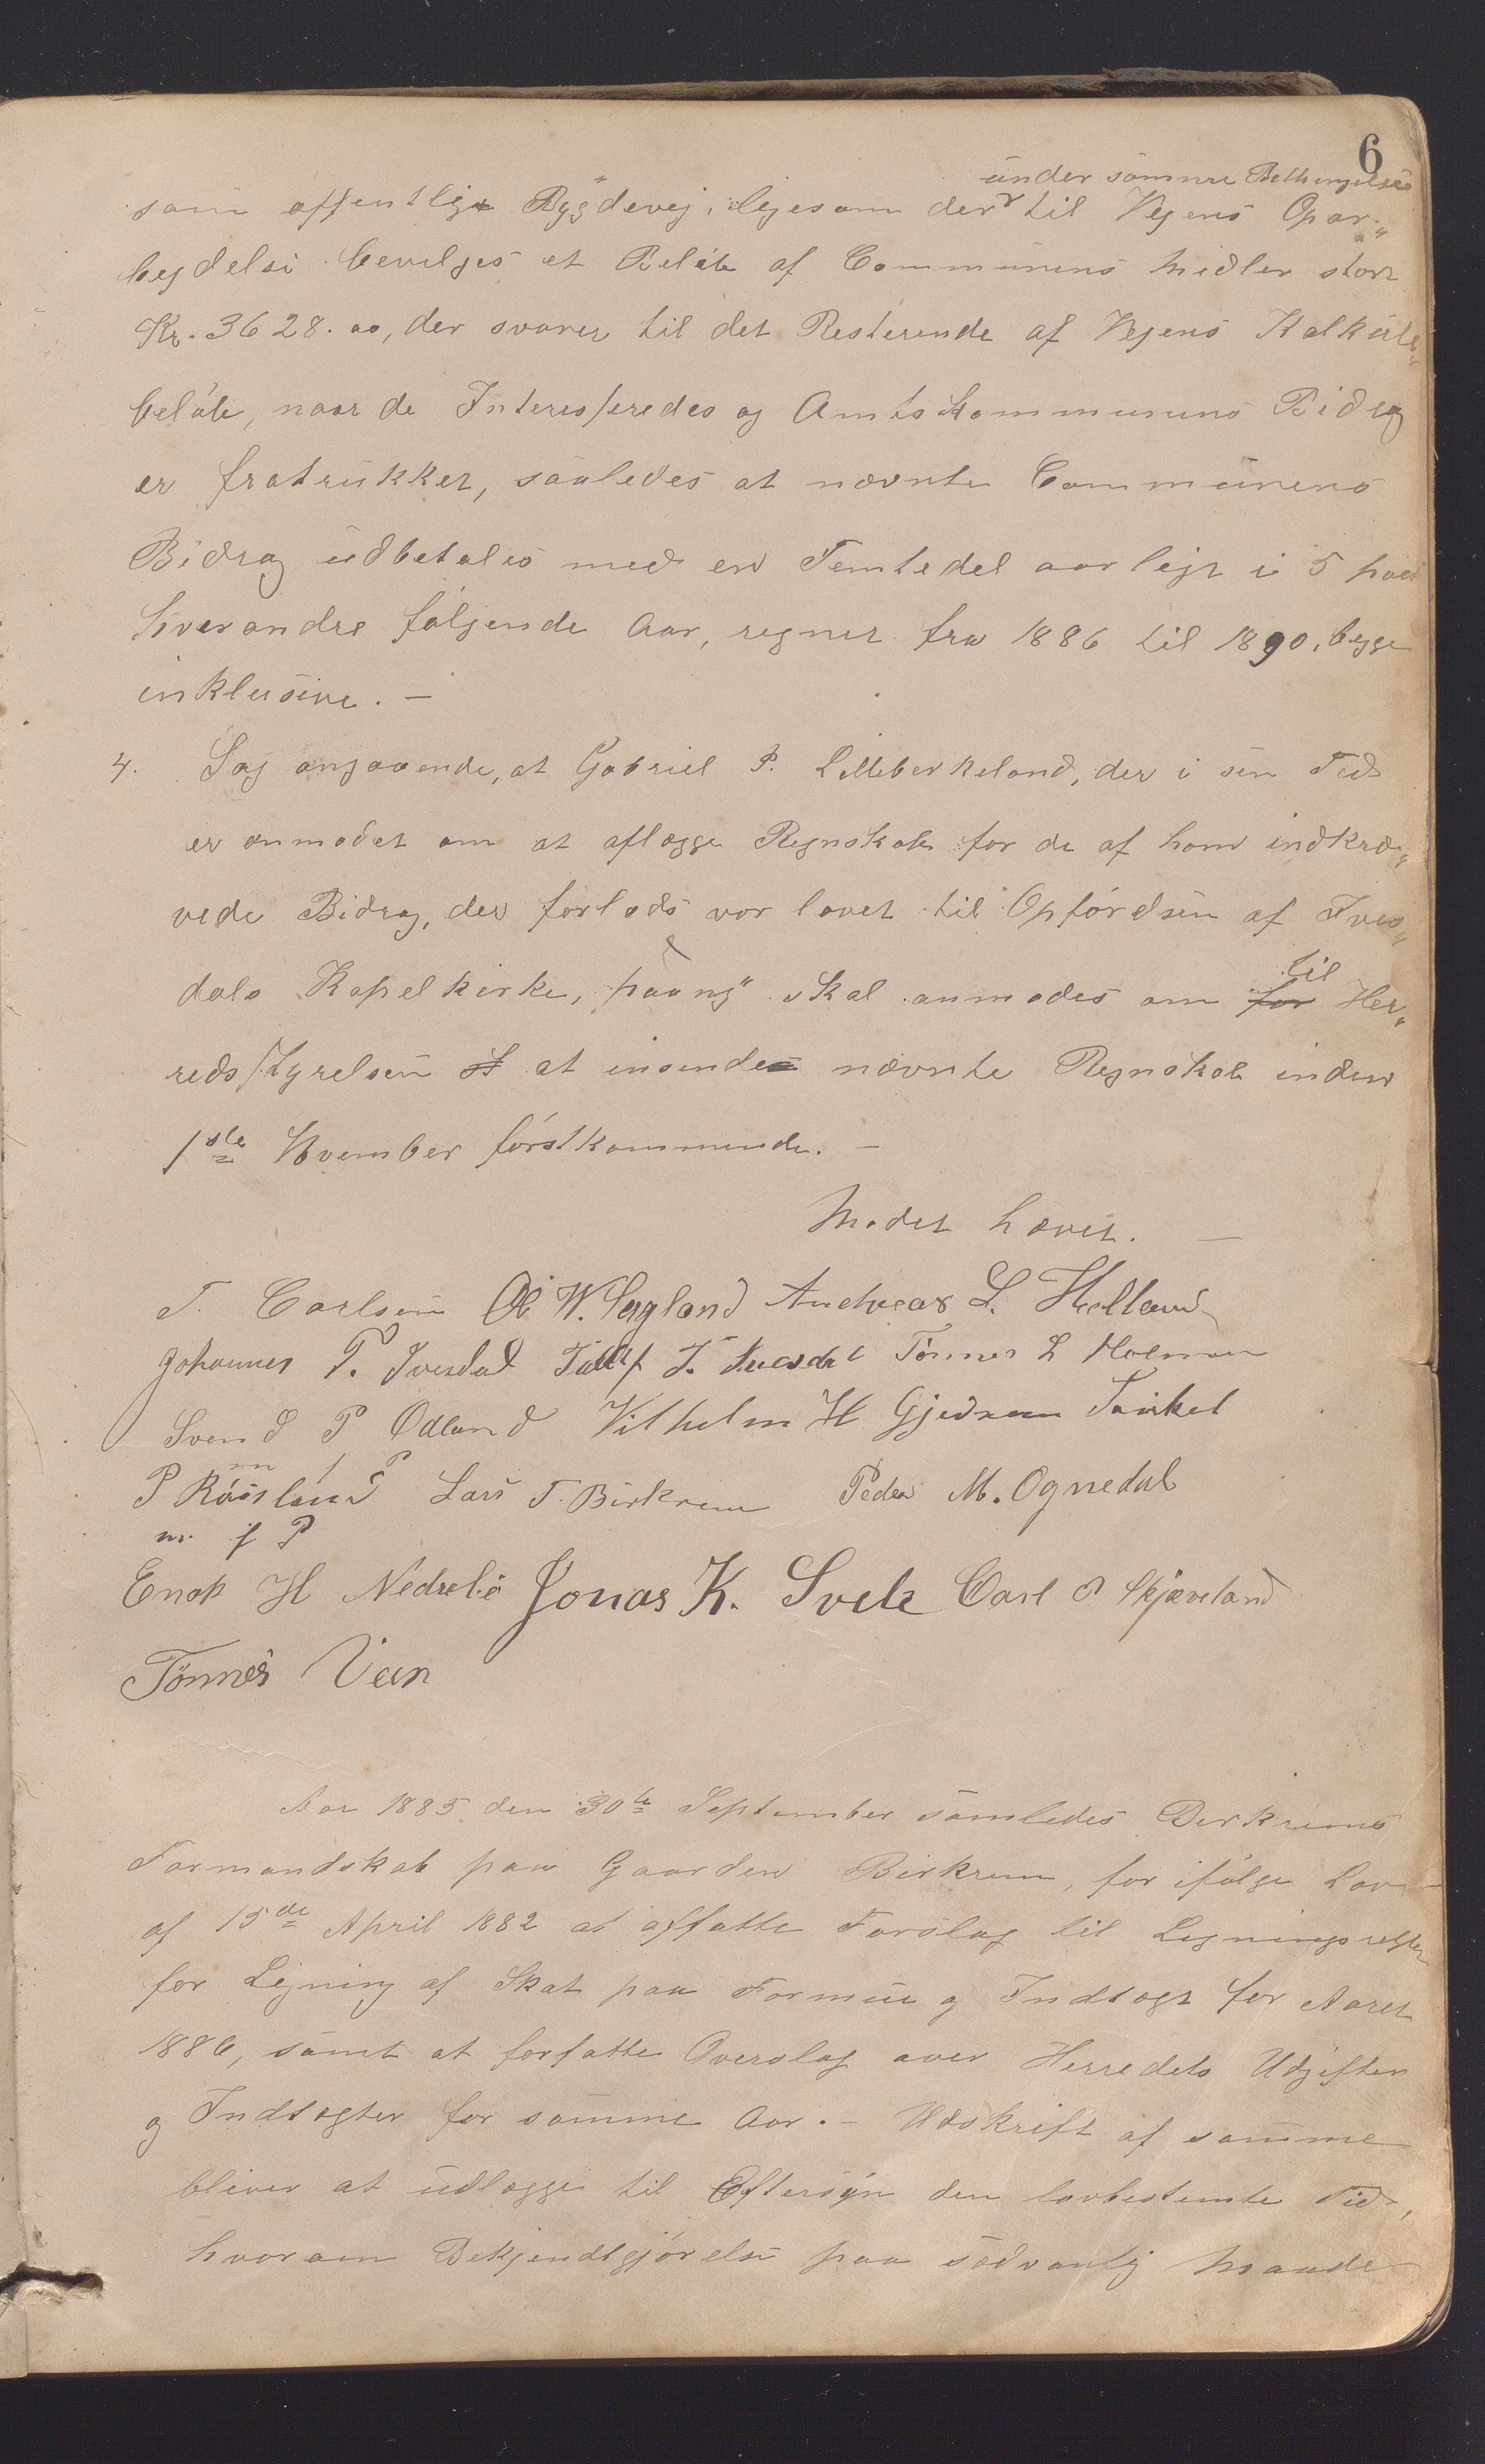 6
under samme Bethingelse
som offentlig Bygdevej, ligesom der til Vejens Opar„
bejdelse bevilges et Beløb af Communens Midler stort
Kr. 3628.00, der svarer til det Resterende af Vejens Kalkule„
beløb, naar de Interesseredes og Amtskommunens Bidrag
er fratrukket, saaledes at nævnte Communens
Bidrag udbetales med en Femtedel aarligt i 5 paa
hverandre følgende Aar, regnet fra 1886 til 1890, begge
inklusive. —
4. Sag angaaende, at Gabriel P. Lilleberkeland, der i sin Tid
er anmodet om at aflægge Regnskab for de af ham indkræ„
vede Bidrag, der forlods var lovet til Opførelsen af Ives„
dals Kapelkirke, paany skal anmodes om til Her„
redsstyrelsen at insende nævnte Regnskab inden
1ste November førstkommende. —
Mødet hævet. —
T. Carlsen Ol W. Sagland Andreas L. Helland
Johannes P. Ivesdal Tollef T. Ivesdal Tönnes L Holmen
Svend P Odland Vilhelm H Gjedrem Torkel
P Röisland Lars T. Birkrem Peder M. Ognedal
m f P
m. f P
Enok H Nedrelid Jonas K. Svele Carl O Skjæveland
Tönnes Veen
Aar 1885 den 30te September samledes Berkrems
Formandskab paa Gaarden Birkrem, for ifølge Lov
af 15de April 1882 at affatte Forslag til Ligningsregler
for Ligning af Skat paa Formue og Indtægt for Aaret
1886, samt at forfatte Overslag over Herredets Udgifter
og Indtægter for samme Aar. — Udskrift af samme
bliver at udlægge til Eftersyn den lovbestemte Tid,
hvorom Bekjendtgjørelse paa sædvanlig Maade